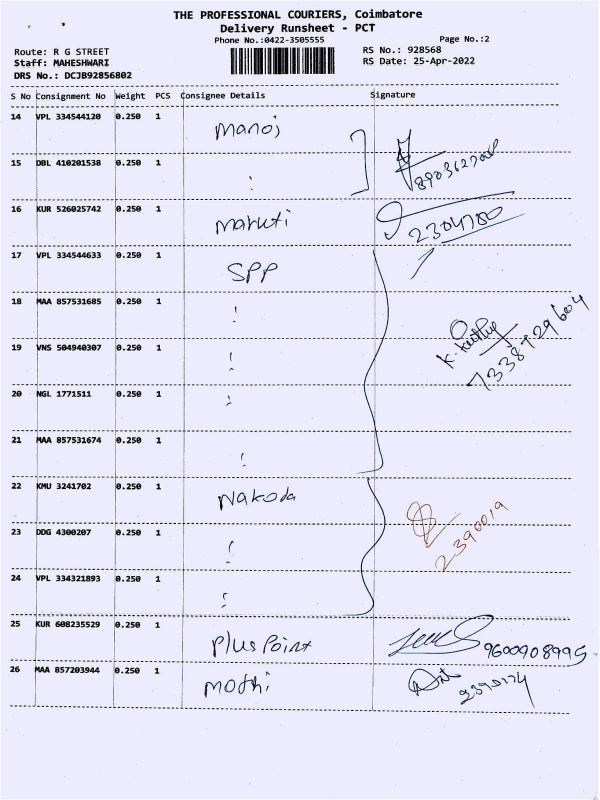 THE PROFESSIONAL COURIERS, Coimbatore
Delivery Runsheet - PCT
Phone No.:0422-3505555 Page No.:2
Route: R G STREET RS No.: 928568
Staff: MAHESHWARI RS Date: 25-Apr-2022
DRS No.: DCJB92856802
S No Consignment No Weight PCS Consignee Details Signature
14 VPL 334544120 0.250 1 Manoj
15 DBL 410201538 0.250 1
16 KUR 526025742 0.250 1 Maruti 2304780
17 VPL 334544633 0.250 1 SPP
18 MAA 857531685 0.250 1
19 VNS 504940307 0.250 1 7338729604
20 NGL 1771511 0.250 1
21 MAA 857531674 0.250 1
22 KMU 3241702 0.250 1 Nakoda
23 DDG 4300207 0.250 1 2390019
24 VPL 334321893 0.250 1
25 KUR 608235529 0.250 1 Plus Point 9600908995
26 MAA 857203944 0.250 1 Mothi